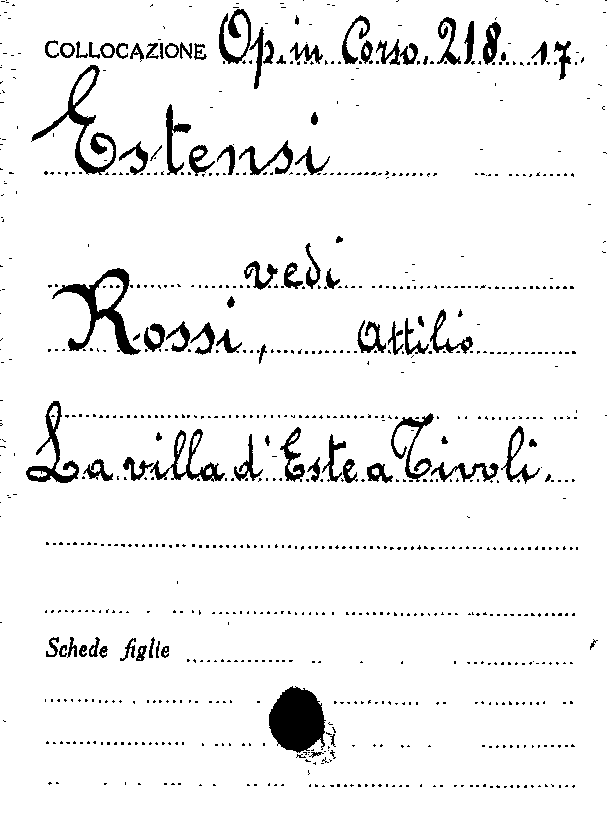 COLLOCAZIONE Op. in Corso. 218. 17.
Estensi
vedi
Rossi, Attilio
La villa d'Este a Tivoli.
Schede figlie